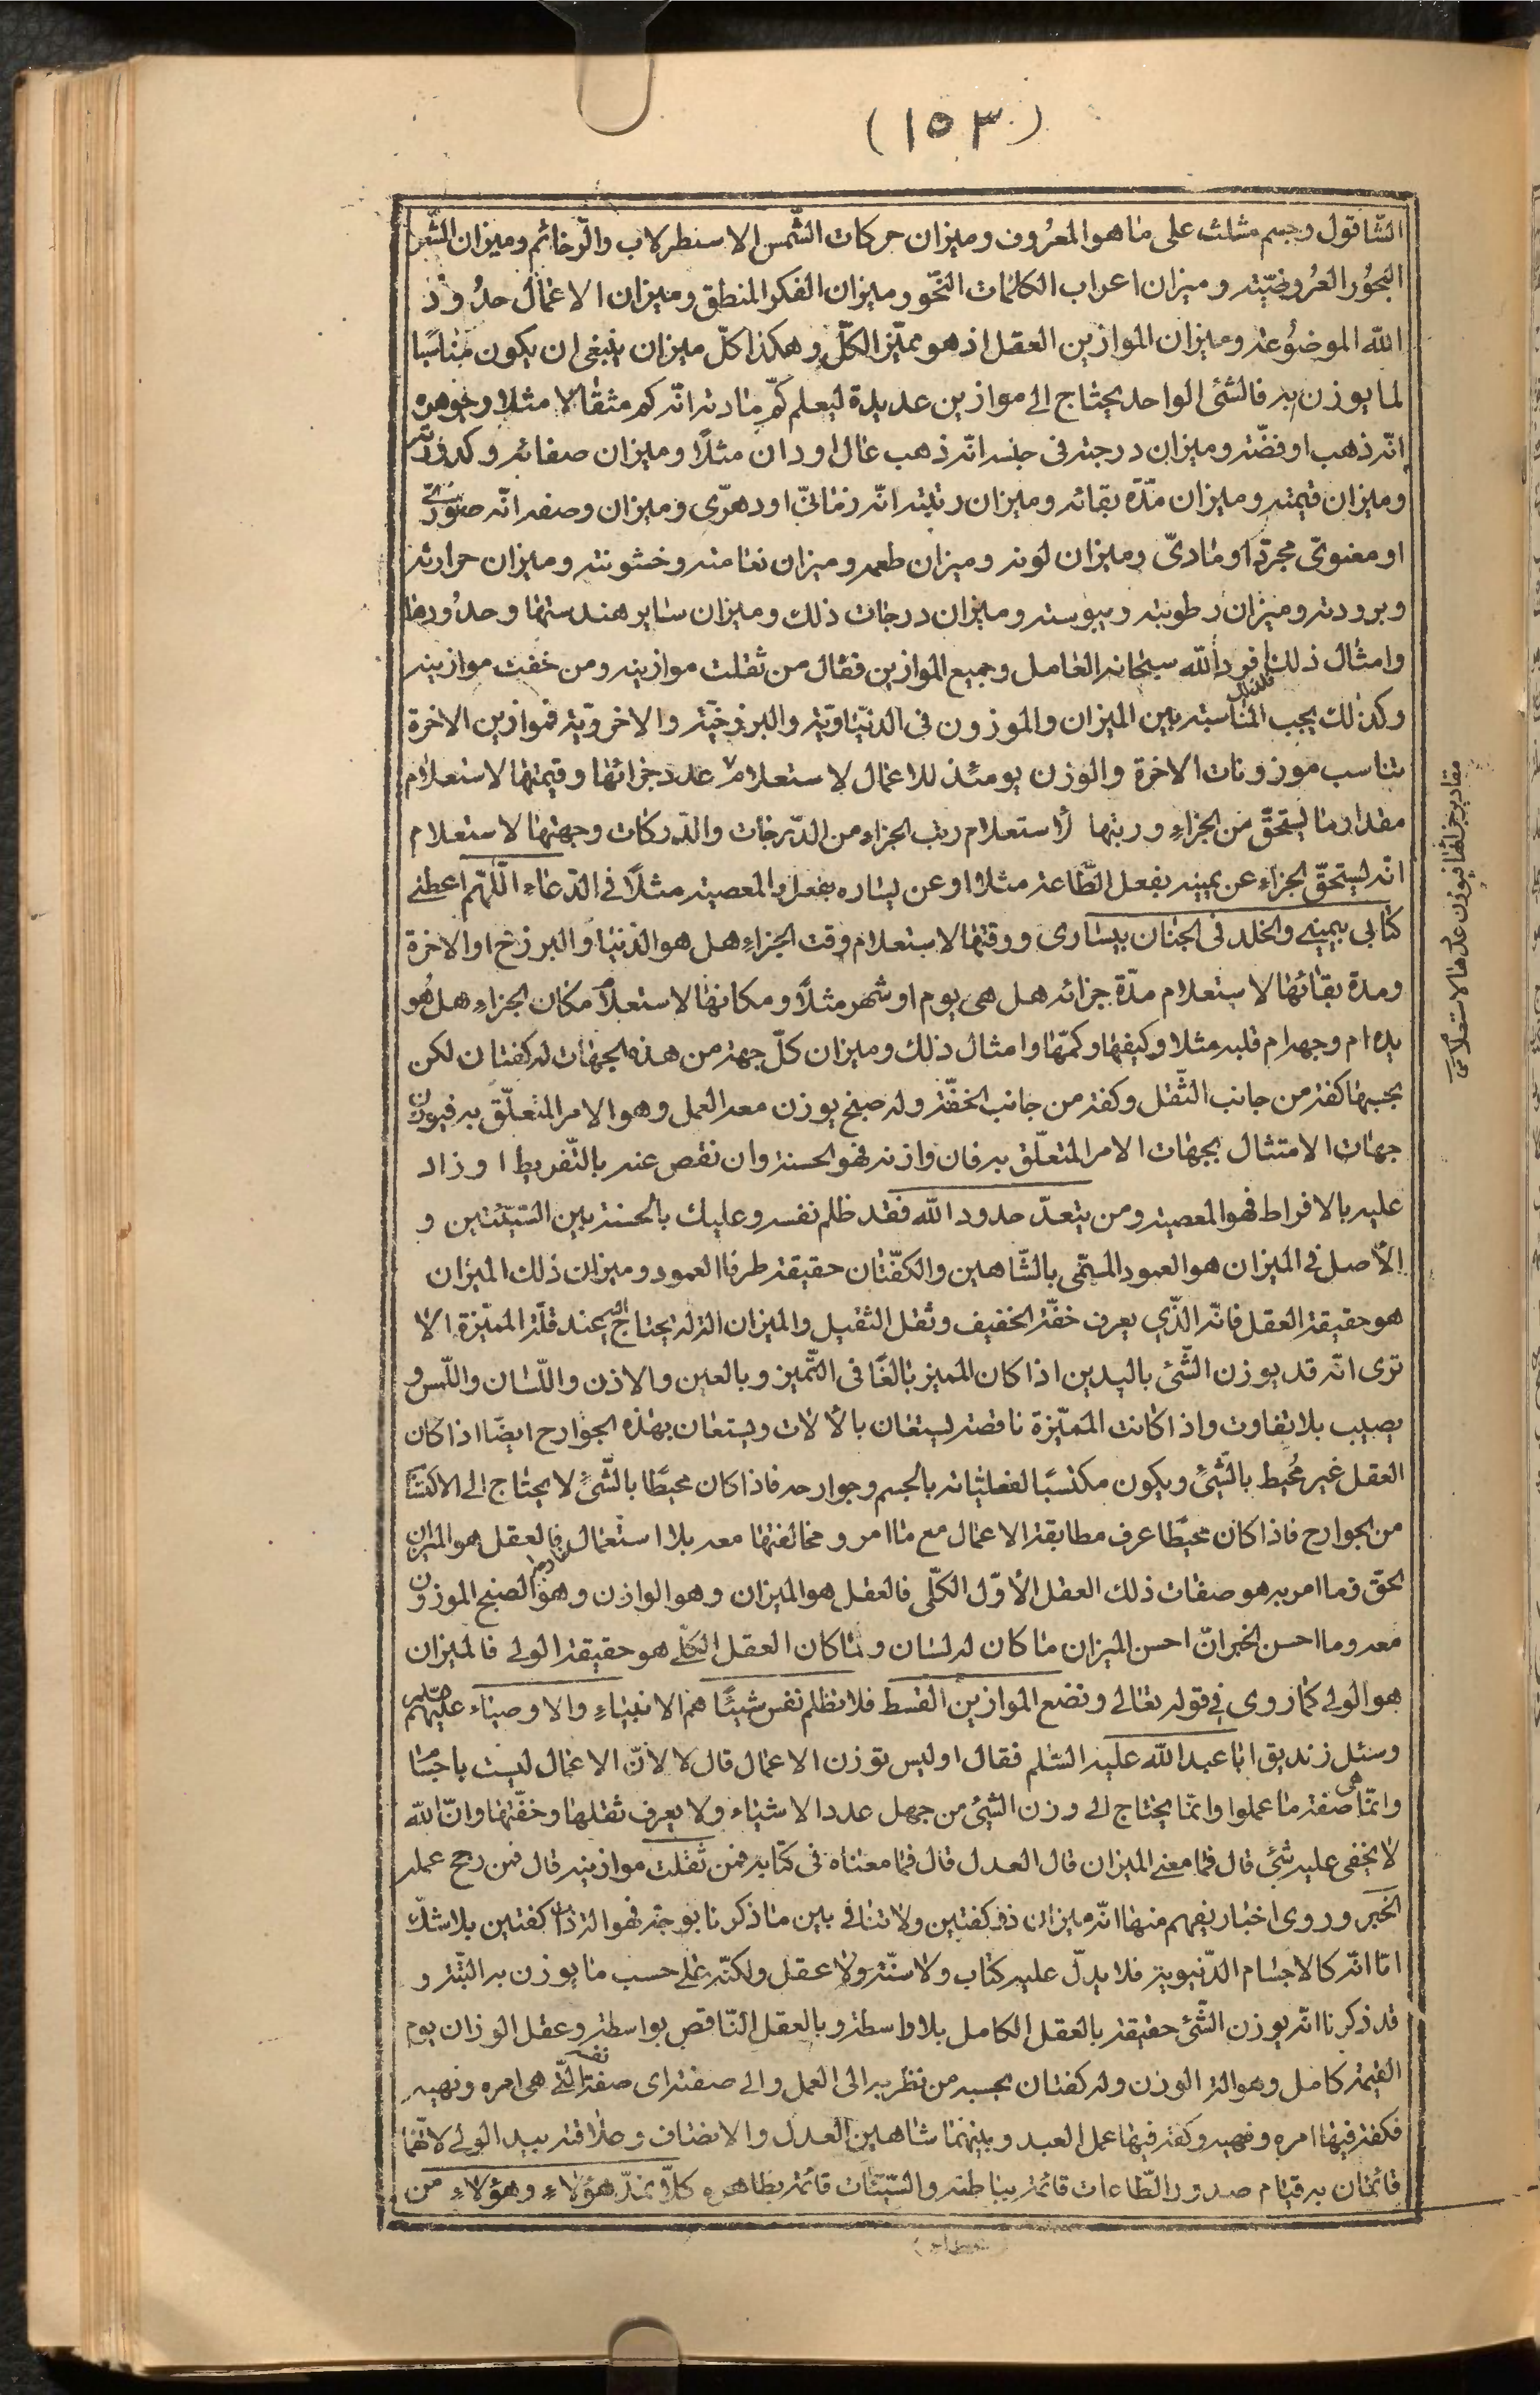 (١٥٣)
الشاقول وجسم مثلث على ما هو المعروف وميزان حركات الشّمس الاسطرلاب والرخائم وميزان الشّعر
البحُور العرُوضيّة وميزان اعراب الكلمات النّحو وميزان الفكر المنطق وميزان الاعمال حدُود
اللّه الموضوُعة وميزان الموازين العقل اذ هو مميّز الكلّ وهكذا كلّ ميزان ينبغى ان يكون مناسبًا
لما يوزن به فالشئ الواحد يحتاج الى موازين عديدة ليعلم كمّ مادته انّه كم مثقالا مثلا وجوهره
انّه ذهب او فضّة وميزان درجته فى جنسه انّه ذهب عال او دان مثلًا وميزان صفائه وكدورته
وميزان قيمته وميزان مدّة بقائه وميزان رتبته انّه زمانىّ او دهرّى وميزان وصفه انّه صورىّ
او معنوىّ مجرّد او مادىّ وميزان لونه وميزان طعمه وميزان نعامته وخشونته وميزان حرارته
وبرودته وميزان رطوبته ويبوسته وميزان درجات ذلك وميزان ساير هندستها وحدُودها
وامثال ذلك فلذلك افرد اللّه سبحانه العامل وجميع الموازين فقال من ثقلت موازينه ومن خفت موازينه
وكذلك يجب المناسبة بين الميزان والموزون فى الدنيّاويّة والبرزخيّة والاخرويّة فموازين الاخرة
تناسب موزونات الاخرة والوزن يومئذ للاعمال لاستعلام عدد جزائها وقيمتها لاستعلام
مقدار ما يستحقّ من الجزاء ورتبها لاستعلام رتب الجزاء من الدّرجات والدّركات وجهتها لاستعلام
انّه يستحقّ الجزاء عن يمينه بفعل الطّاعة مثلا او عن يساره بفعل المعصية مثلًا فى الدّعاء اللّهم اعطنى
كتابى بيمينى والخلد فى الجنان بيسارى ووقتها لاستعلام وقت الجزاء هل هو الدنيا والبرزخ او الاخرة
ومدة بقائها لاستعلام مدّة جزائه هل هى يوم او شهر مثلًا ومكانها لاستعلام مكان الجزاء هل هُو
يده ام وجهه ام قلبه مثلا وكيفها وكمّها وامثال ذلك وميزان كلّ جهة من هذه الجهات له كفتان لكن
بحسبها كفة من جانب الثّقل وكفة من جانب الخفّة وله صنج يوزن معه العمل وهو الامر المتعلّق به فيوزن
جهات الامتثال بجهات الامر المتعلّق به فان وازنه فهو الحسنة وان نقص عنه بالتّفريط او زاد
عليه بالافراط فهو المعصية ومن يتعدّ حدود اللّه فقد ظلم نفسه وعليك بالحسنة بين السّيّئتين و
الأصل فى الميزان هو العمود المسمّى بالشّاهين والكفّتان حقيقة طرفا العمود وميزان ذلك الميزان
هو حقيقة العقل فانّه الّذي يعرف خفّة الخفيف وثقل الثقيل والميزان الة له يحتاج اليه عند قلّة المميّزة الا
ترى انّه قد يوزن الشّئ باليدين اذا كان المميز بالغًا فى التّميز وبالعين والاذن واللّسان واللّمس و
يصيب بلا تفاوت واذا كانت المميّزة ناقصة يستعان بالالات ويستعان بهذه الجوارح ايضًا اذا كان
العقل غير مُحيط بالشّئ ويكون مكتسبًا لفعليّاته بالجسم وجوارحه فاذا كان محيطًا بالشّئ لا يحتاج الى الاكتساب
من الجوارح فاذا كان محيطًا عرف مطابقة الاعمال مع ما امر ومخالفتها معه بلا استعمال فالعقل هو الميزان
الحقّ وما امر به هو صفات ذلك العقل الأوّل الكلّى فالعقل هو الميزان وهو الوازن وهو الصنج الموزون
معه وما احسن الخبر انّ احسن الميزان ما كان له لسان ولمّا كان العقل الكلّى هو حقيقة الولى فالميزان
هو الولى كما روى فى قوله تعالى ونضع الموازين القسط فلا تظلم نفس شيئًا هم الانبياء والاوصياء عليهم السّلم
وسئل زنديق ابا عبد اللّه عليه السّلم فقال اوليس توزن الاعمال قال لا لانّ الاعمال ليست باجسام
وانّما هى صفة ما عملوا وانّما يحتاج الى وزن الشئ من جهل عدد الاشياء ولا يعرف ثقلها وخفّتها وانّ اللّه
لا يخفى عليه شئ قال فما معنى الميزان قال العدل قال فما معناه فى كتابه فمن ثقلت موازينه قال فمن رجح عمله
الخبر وروى اخبار يفهم منها انّه ميزان ذو كفتين ولا تنافى بين ما ذكرنا بوجه فهو الة ذات كفتين بلا شكّ
امّا انّه كالاجسام الدّنيوية فلا يدلّ عليه كتاب ولا سنّة ولا عقل ولكنّه على حسب ما يوزن به البتّة و
قد ذكرنا انّه يوزن الشّئ حقيقة بالعقل الكامل بلا واسطة وبالعقل النّاقص بواسطة وعقل الوزان يوم
القيمة كامل وهو الة الوزن وله كفتان بحسبه من نظريه الى العمل والى صفته اى صفة نفسه الّتى هى امره ونهيه
فكفة فيها امره ونهيه وكفة فيها عمل العبد وبينهما شاهين العدل والانصاف وعلاقته بيد الولى لانّهما
قائمتان به قيام صدور الطّاعات قائمة بباطنه والسّيّئات قائمة بظاهره كلّاً نمدّ هؤلاء وهؤلاء من
مقادير جزائها فيوزن عددها لاستعلام